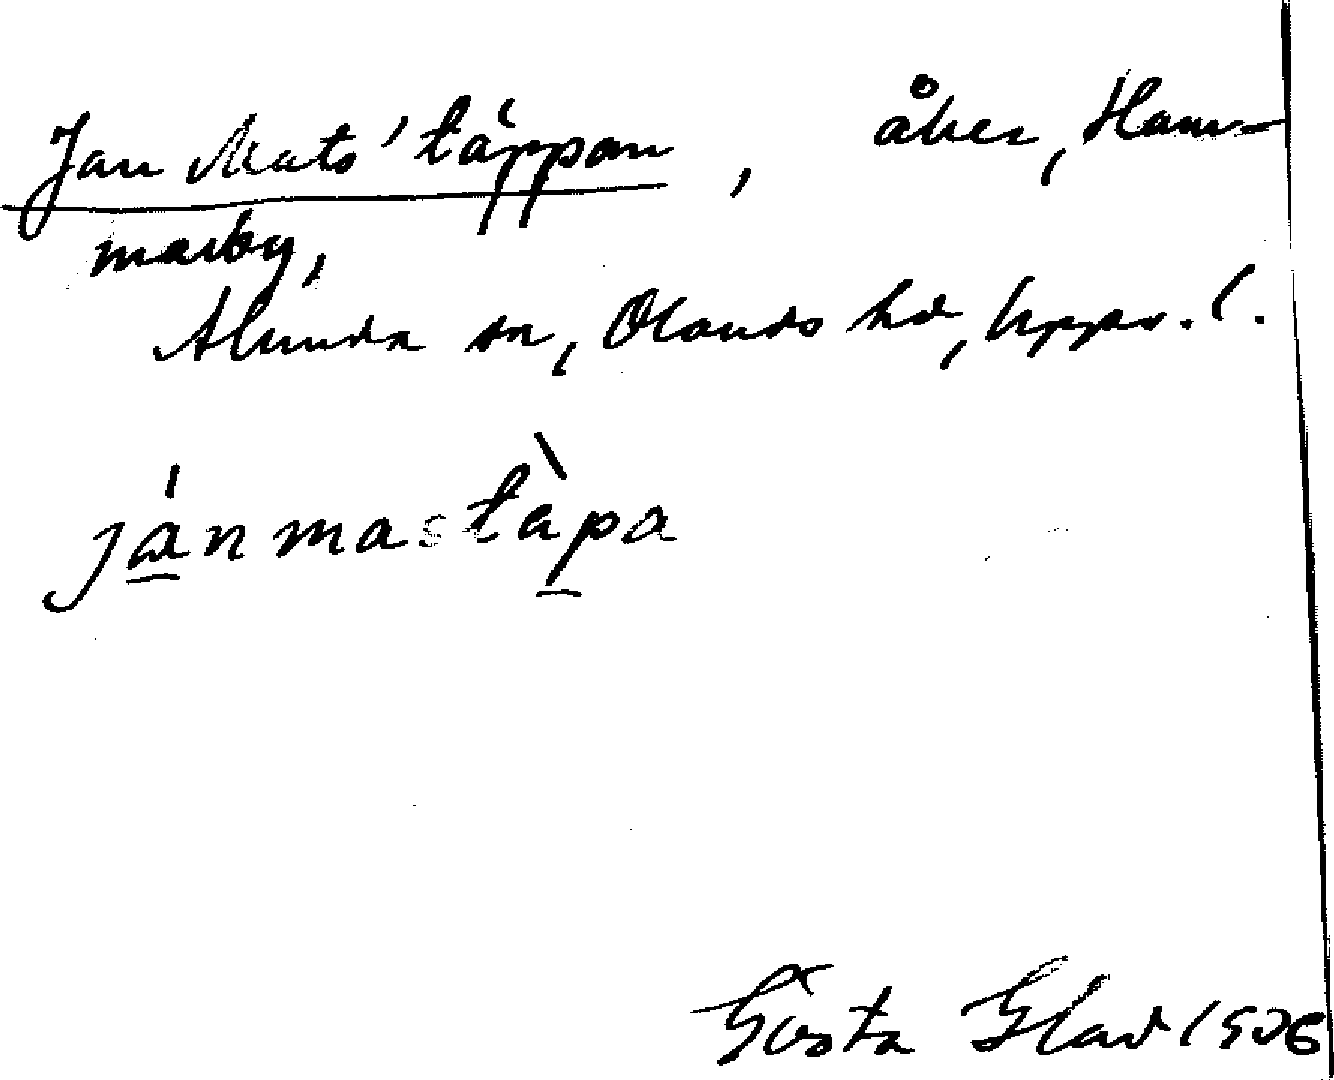 Jan Mats' täppan, åker, Ham-
marby,
Alunda sn, Olands hd, Upps. l.
jánmastàpa
Gösta Glad 1936